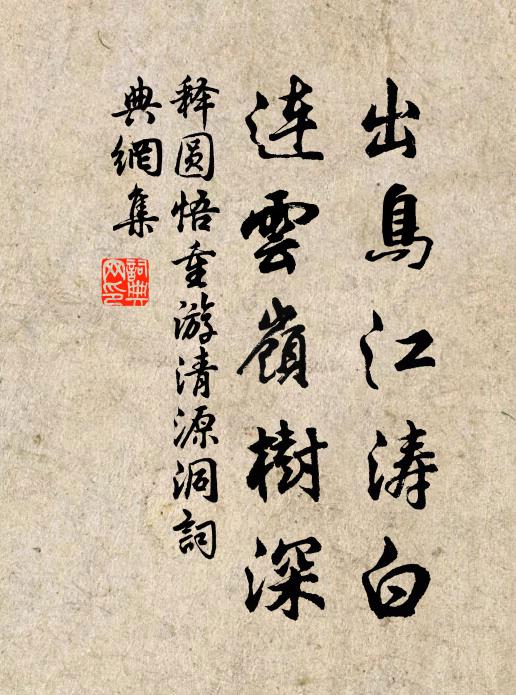 出鳥江涛白
連雲嶺樹深
释圆悟重游清源洞詞
典網集
詞典
网印